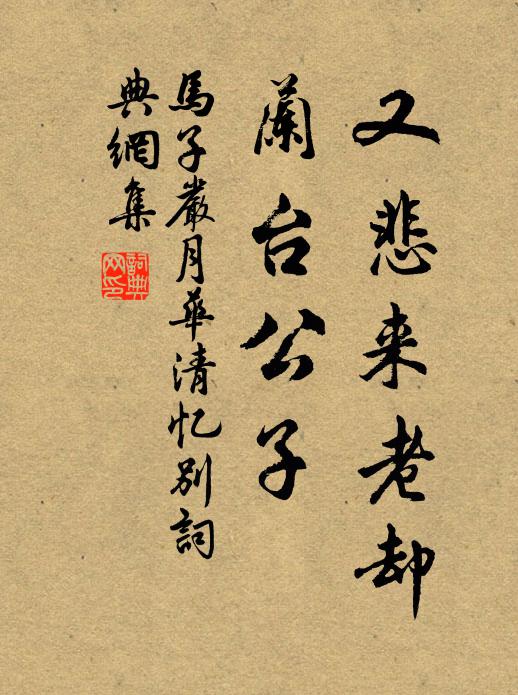 又悲来老却
蘭台公子
馬子嚴月華清忆别詞
典網集
詞典
网印